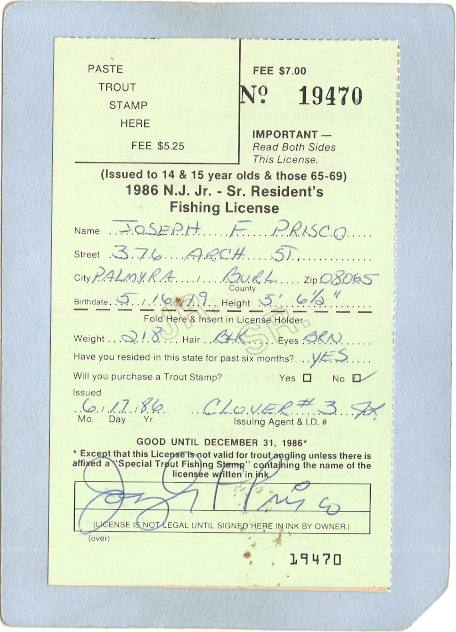 PASTE
TROUT
STAMP
HERE
FEE $5.25
FEE $7.00
Nº 19470
IMPORTANT —
Read Both Sides
This License.
(Issued to 14 & 15 year olds & those 65-69)
1986 N.J. Jr. - Sr. Resident's
Fishing License
Name JOSEPH F PRISCO
Street 376 ARCH ST.
City PALMYRA BURL Zip 08065
County
Birthdate 5 16 Height 5' 6½"
Fold Here & Insert in License Holder
Weight 218 Hair BLK Eyes BRN
Have you resided in this state for past six months? YES
Will you purchase a Trout Stamp? Yes ☐ No ☑
Issued
6 17 86 CLOVER #3
Mo. Day Yr. Issuing Agent & I.D. #
GOOD UNTIL DECEMBER 31, 1986*
* Except that this License is not valid for trout angling unless there is
affixed a "Special Trout Fishing Stamp" containing the name of the
licensee written in ink.
Joseph F Prisco
(LICENSE IS NOT LEGAL UNTIL SIGNED HERE IN INK BY OWNER.)
(over)
19470